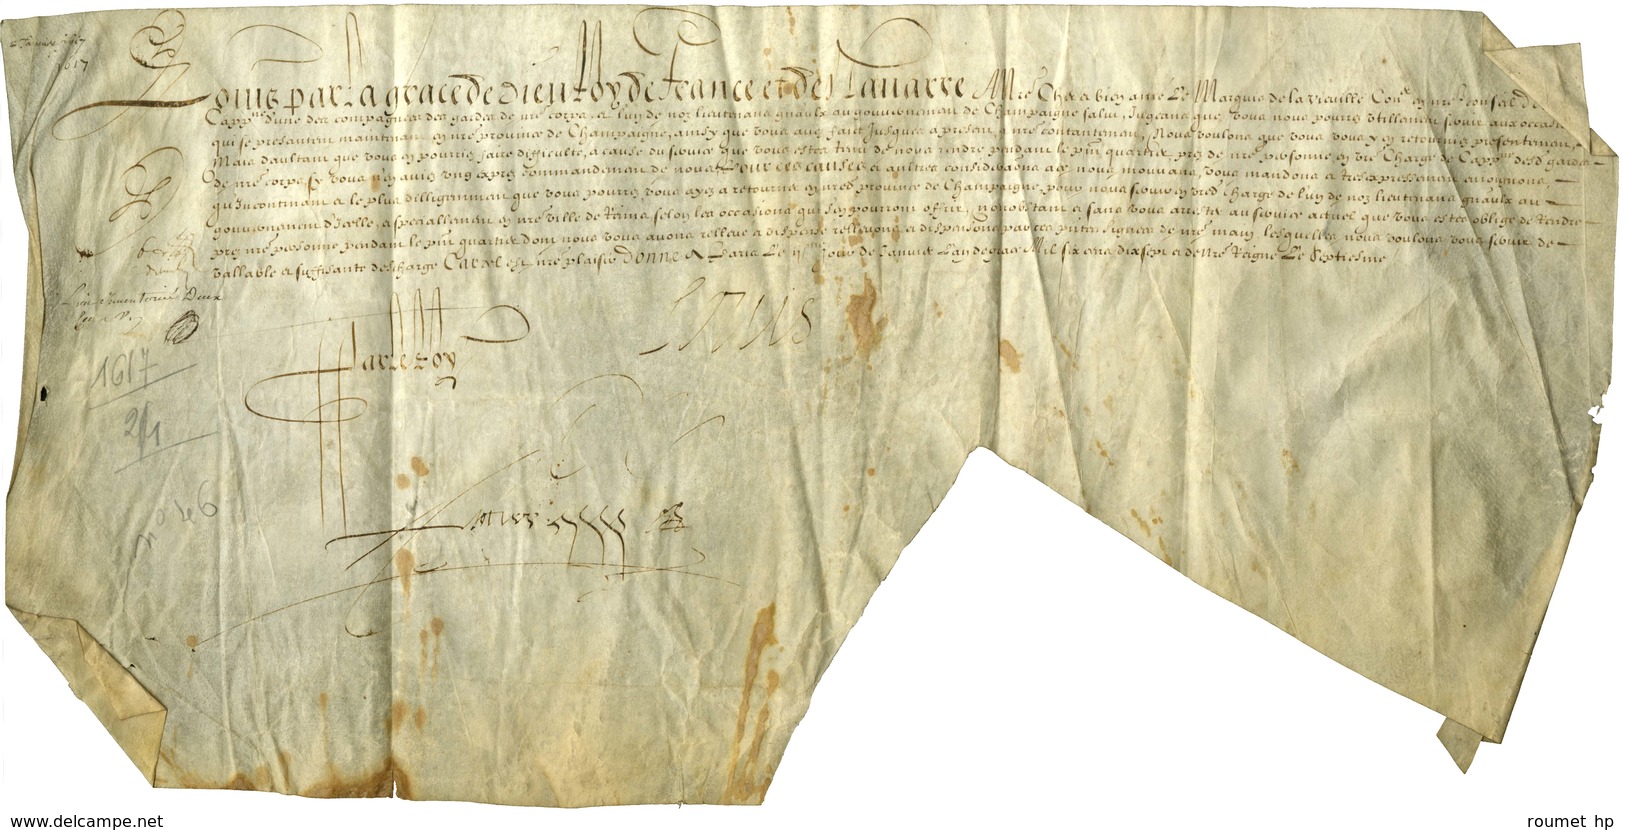 2 Janvier 1617
1617
Louis par La grace de Dieu Roy de France et de Navarre A Nre Cher et bien amé Le Marquis de la Vieuville Conser en nre conseil d'
Cappne d'une des compagnies des gardes de nre corps, et l'un de noz lieutenans gnaulx au gouvernement de Champaigne salut, Jugeans que vous nous pourrez utillement servir aux occasions
qui se presentent maintenant en nre province de Champaigne, ainsy que vous avez fait jusques a present, a nre contantement, Nous voulons que vous vous y en retourniez presentement,
Mais d'aultant que vous en pourriez faire difficulté, a cause du service que vous estes tenu de nous rendre pendant le pnt quartier pres de nre personne en vre Charge de Cappne desd gardes
de nre corps sy vous n'en aviez ung expres commandement de nous Pour ces causes et autres considerations a ce nous mouvans, vous mandons et tres expressement enjoignons,
qu'incontinant et le plus dilligemment que vous pourrez vous ayez a retourner en nred province de Champaigne, pour nous servir en vred charge de l'un de noz lieutenans gnaulx au
gouvernement d'icelle, et specialement en nre ville de Reims selon les occasions qui s'en pourront offrir, nonobstant et sans vous arrester au service actuel que vous estes obligé de rendre
pres nre personne pendant le pnt quartier dont nous vous avons rellevé et dispensé rellevons et dispensons par ces pntes signées de nre main lesquelles nous voulons vous servir de
vallable et suffisante descharge Car tel est nre plaisir Donné A Paris Le ije Jour de Janvier L'an de grace Mil six cens dix sept et de Nre Regne Le Septiesme
Inventorié Deux
Louis
Par le Roy
1617
2/1
no 46
www.delcampe.net
roumet hp